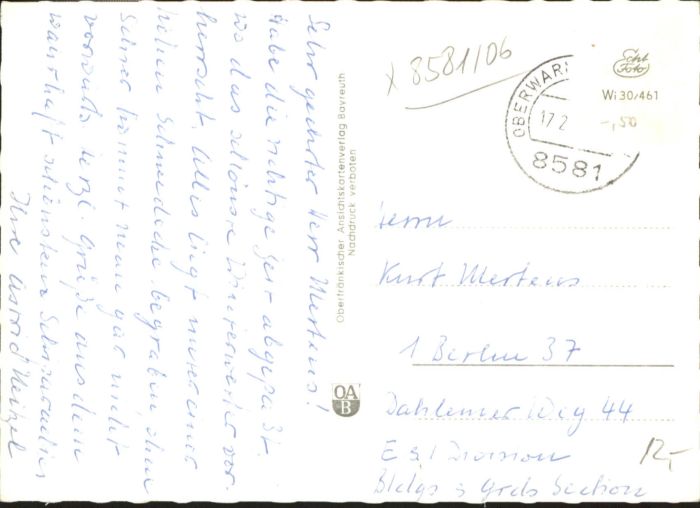 Sehr geehrter Herr Mertens!
habe die richtige Zeit abgepaßt.
wo das schönste Winterwetter vor-
herrscht. Alles liegt unter einer
hohen Schneedecke begraben, ohne
Skier kommt man gar nicht
vorwärts. Herzl. Grüße aus dem
wahrhaft schönsten Skiparadies
Ihre Astrid Heizel
Oberfränkischer Ansichtskartenverlag Bayreuth
Nachdruck verboten
OA
B
x 8581/06
Echt
Foto
Wi 30/461
-,50
OBERWAR
17.2
8581
Herrn
Kurt Mertens
1 Berlin 37
Dahlemer Weg 44
E & I Division
Bldgs & Grds Section
12,-